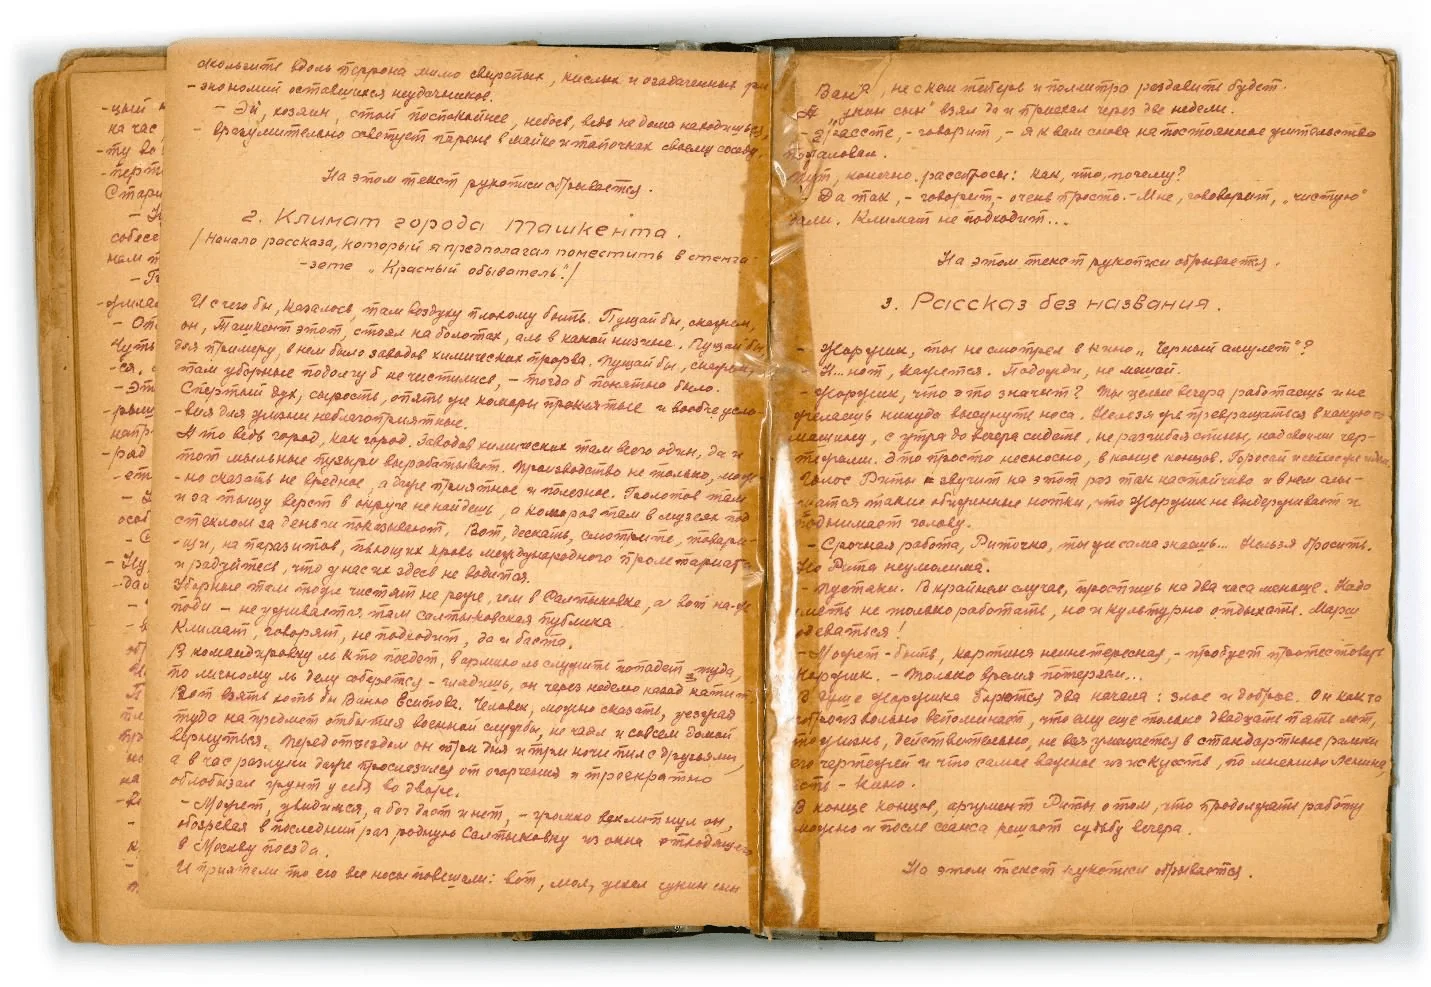 скользите вдоль перрона мимо свирепых, кислых и озадаченных физи-
-ономий оставшихся неудачников.
- Эй, хозяин, стой поспокойнее, небось, ведь не дома находишься,
- вразумительно советует парень в майке и тапочках своему соседу.
На этом текст рукописи обрывается.
2. Климат города Ташкента.
/Начало рассказа, который я предполагал поместить в стенга-
-зете „Красный обыватель“./
И с чего бы, казалось, там воздуху плохому быть. Пущай бы, скажем,
он, Ташкент этот, стоял на болотах, аль в какой низине. Пущай бы
для примеру, в нем было заводов химических прорва. Пущай бы, скажем,
там уборные подолгу б не чистились, - тогда б понятно было.
Спертый дух, сырость, опять же комары проклятые и вообче усло-
-вия для жизни неблагоприятные.
А то ведь город, как город. Заводов химических там всего один, да и
тот мыльные пузыри вырабатывает. Производство не только, мож-
-но сказать не вредное, а даже приятное и полезное. Болотов там
и за тыщу верст в округе не найдешь, а комаров там в музеях под
стеклом за деньги показывают. Вот, дескать, смотрите, товари-
-щи, на паразитов, пьющих кровь международного пролетариата
и радуйтесь, что у нас их здесь не водится.
Уборные там тоже чистят не реже, чем в Салтыковке, а вот на-ж
поди - не уживается там салтыковская публика.
Климат, говорят, не подходит, да и баста.
В командировку ль кто поедет, в армию ль служить попадет туда,
по личному ль делу соберется - глядишь, он через неделю назад катит.
Вот взять хоть бы Ваню Есипова. Человек, можно сказать, уезжал
туда на предмет отбытия военной службы, не чаял и совсем домой
вернуться. Перед отъездом он три дня и три ночи пил с друзьями,
а в час разлуки даже прослезился от огорчения и троекратно
облобызал грунт у себя во дворе.
- Может, увидимся, а бог даст и нет, - громко воскликнул он,
обозревая в последний раз родную Салтыковку из окна отходящего
в Москву поезда.
И приятели то его все носы повешали: вот, мол, уехал сукин сын
Ванька, не с кем теперь и поллитра раздавить будет.
А „сукин сын“ взял да и приехал через две недели.
- Здрассте, - говорит, - я к вам снова на постоянное жительство
пожаловал.
Тут, конечно, расспросы: как, что, почему?
- Да так, - говорит - очень просто. - Мне, говорит, „чистую“
дали. Климат не подходит...
На этом текст рукописи обрывается.
3. Рассказ без названия.
- Жоржик, ты не смотрел в кино „Черный амулет“?
- Н... нет, кажется. Подожди, не мешай.
- Жоржик, что это значит? Ты целые вечера работаешь и не
желаешь никуда высунуть носа. Нельзя же превращаться в какую-то
машину, с утра до вечера сидеть, не разгибая спины, над своими чер-
тежами. Это просто несносно, в конце концов. Бросай и сейчас же идем.
Голос Риты звучит на этот раз так настойчиво и в нем слы-
шатся такие обиженные нотки, что Жоржик не выдерживает и
поднимает голову.
- Срочная работа, Риточка, ты же сама знаешь... Нельзя бросить.
Но Рита неумолима.
- Пустяки. В крайнем случае, проспишь на два часа меньше. Надо
уметь не только работать, но и культурно отдыхать. Марш
одеваться!
- Может-быть, картина неинтересная, - пробует протестовать
Жоржик. - Только время потеряем...
В душе Жоржика борются два начала: злое и доброе. Он как-то
непроизвольно вспоминает, что ему еще только двадцать пять лет,
что жизнь, действительно, не вся умещается в стандартные рамки
его чертежей и что самое важное из искусств, по мнению Ленина,
есть - кино.
В конце концов, аргумент Риты о том, что продолжать работу
можно и после сеанса решает судьбу вечера.
На этом текст рукописи обрывается.